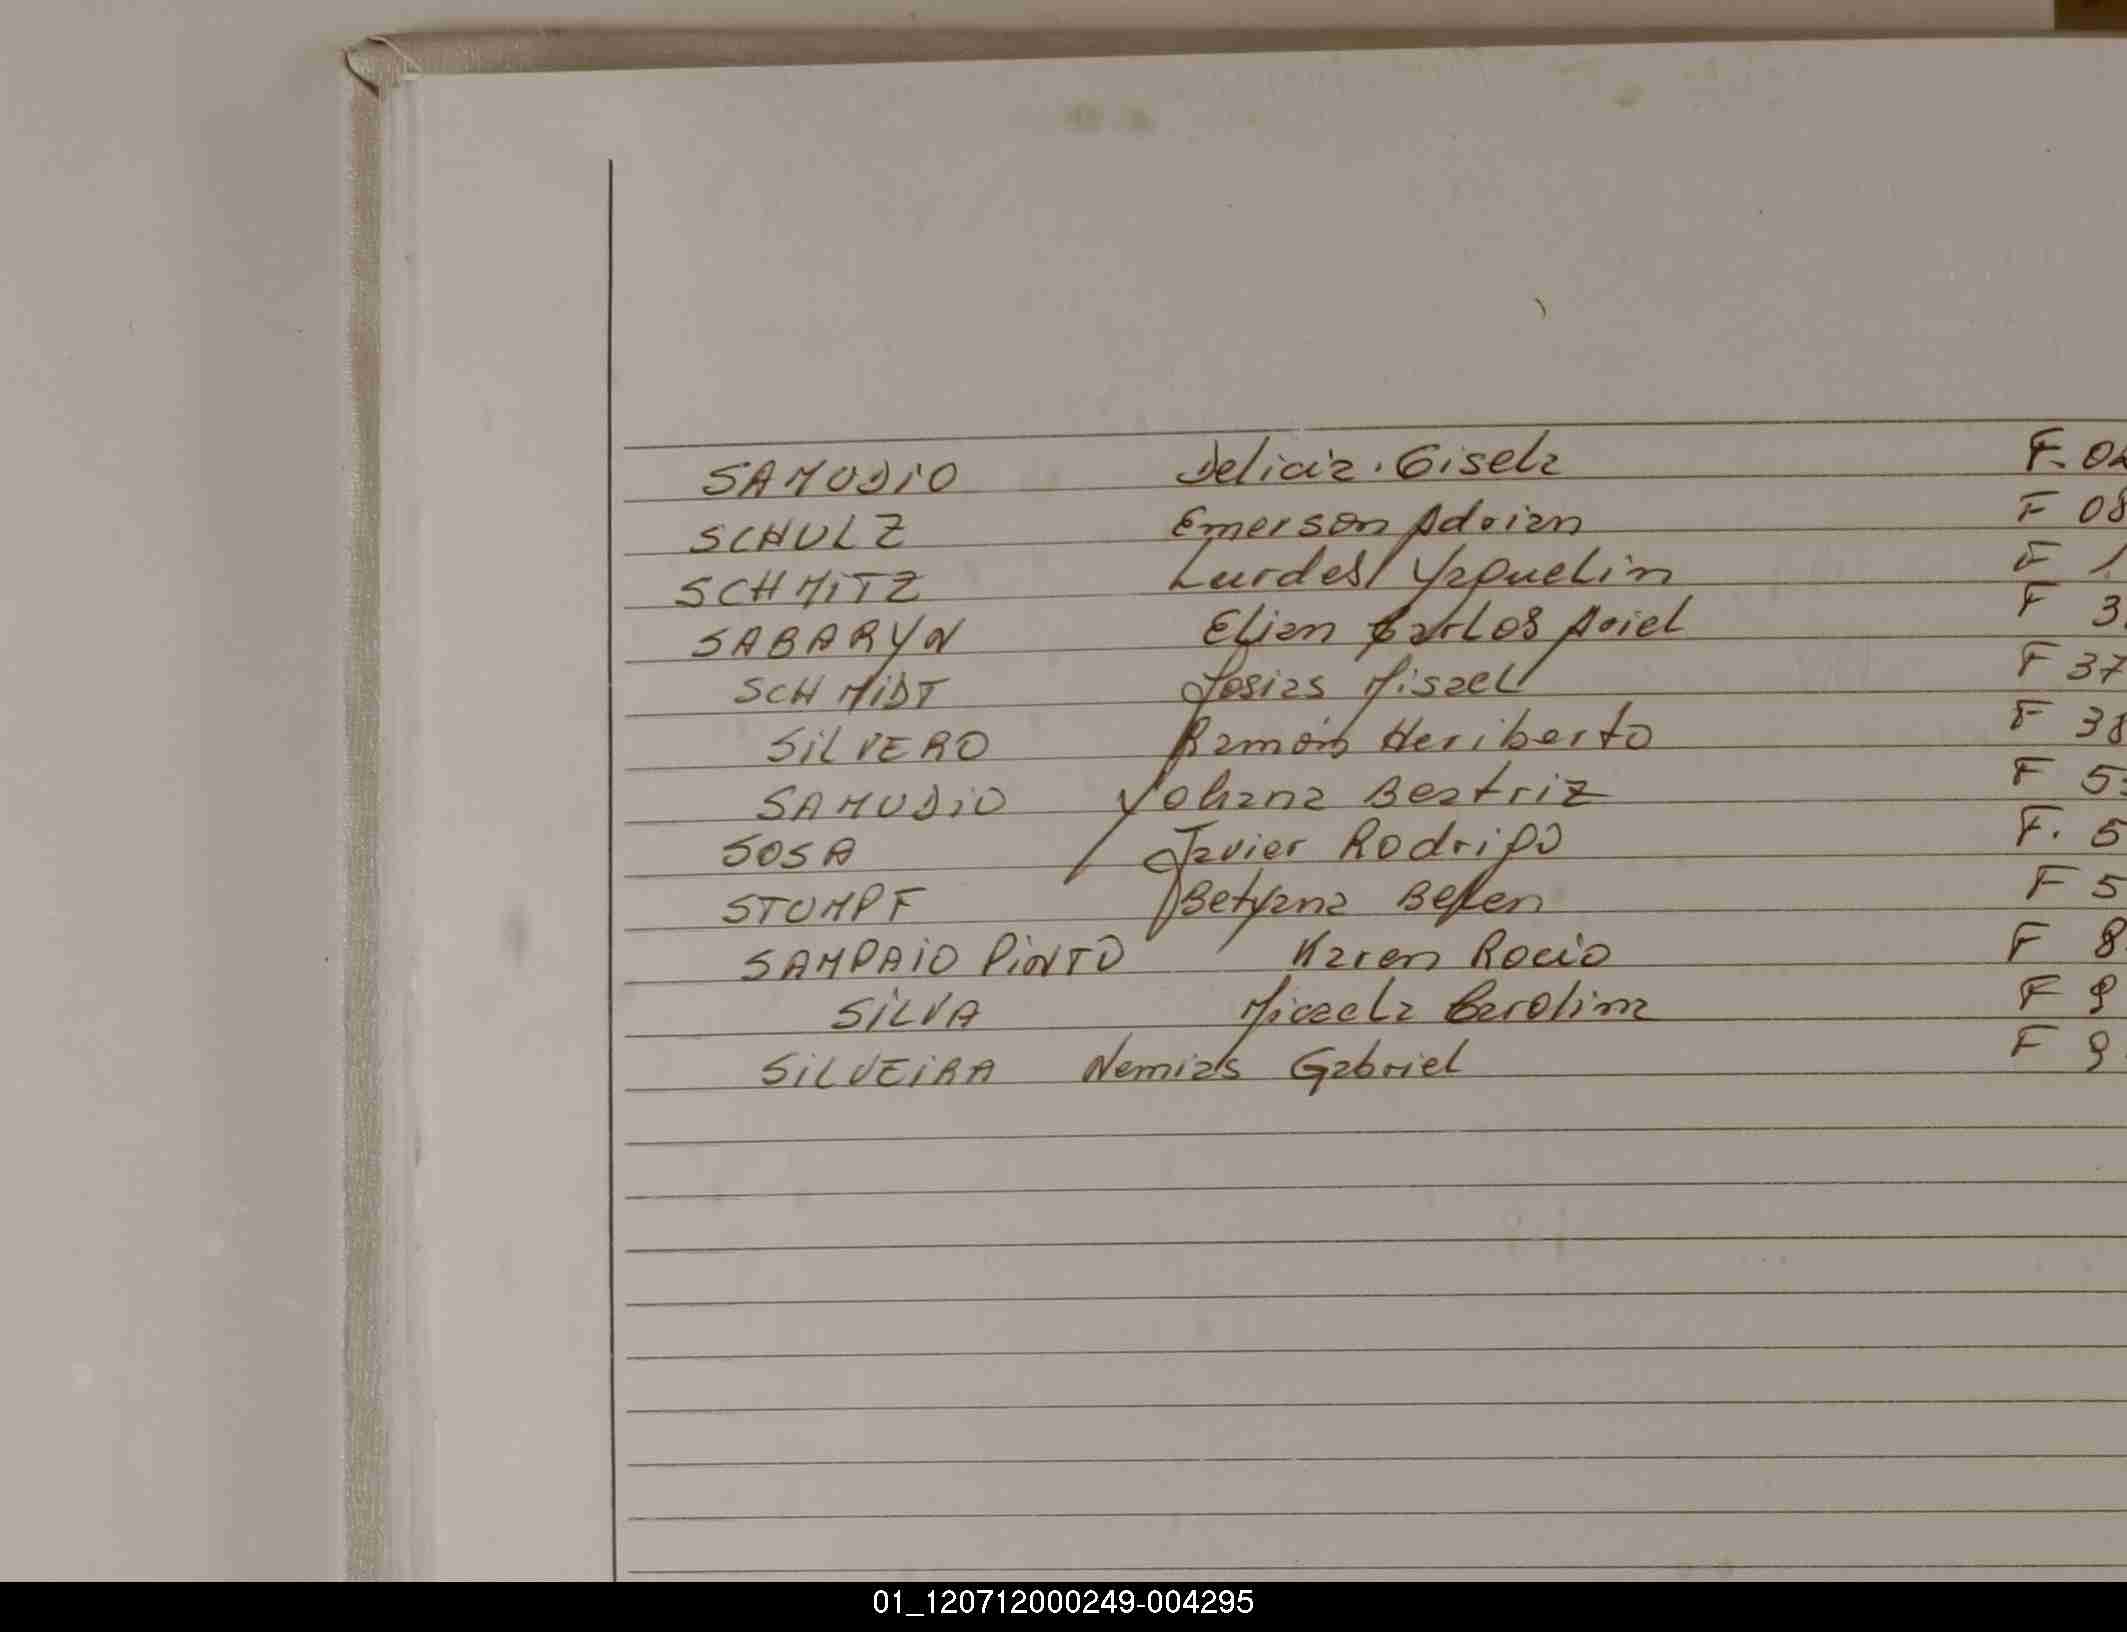 SAMUDIO Delicia. Gisela F. 02
SCHULZ Emerson Adrian F 08
SCHMITZ Lurdes Yaquelin F 1
SABARYN Elian Carlos Ariel F 3
SCHMIDT Josias Misael F 37
SILVERO Ramón Heriberto F 38
SAMUDIO Yohana Beatriz F 5
SOSA Javier Rodrigo F. 5
STUMPF Betyana Belen F 5
SAMPAIO PINTO Karen Rocio F 8
SILVA Micaela Carolina F 9
SILVEIRA Nemias Gabriel F 9
01_120712000249-004295